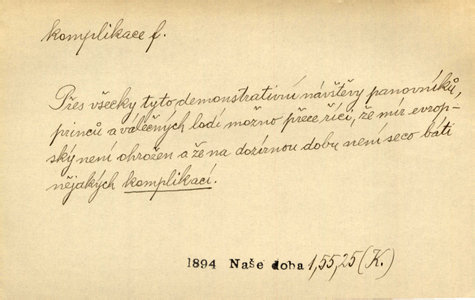 komplikace f.
Přes všecky tyto demonstrativní návštěvy panovníků,
princů a válečných lodí možno přece říci, že mír evrop-
ský není ohrožen a že na dozírnou dobu není seco báti
nějakých komplikací.
1894 Naše doba 1,55,25 (K.)